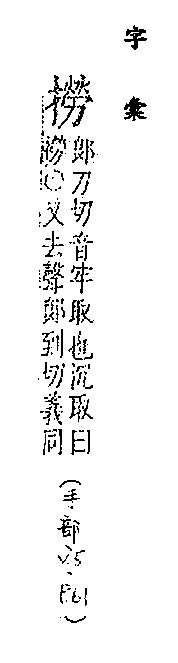 字彙
撈
郎刀切音牢取也沉取曰
撈○又去聲郎到切義同
(手部